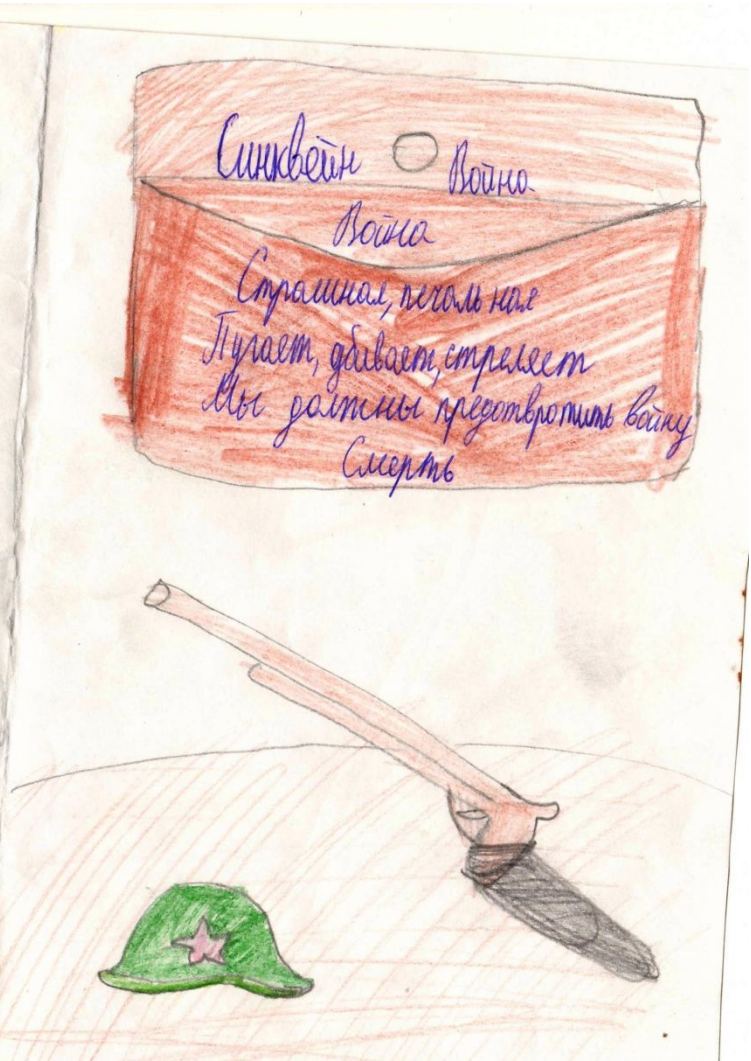 Синквейн Война
Война
Страшная, печальная
Пугает, убивает, стреляет
Мы должны предотвратить войну
Смерть